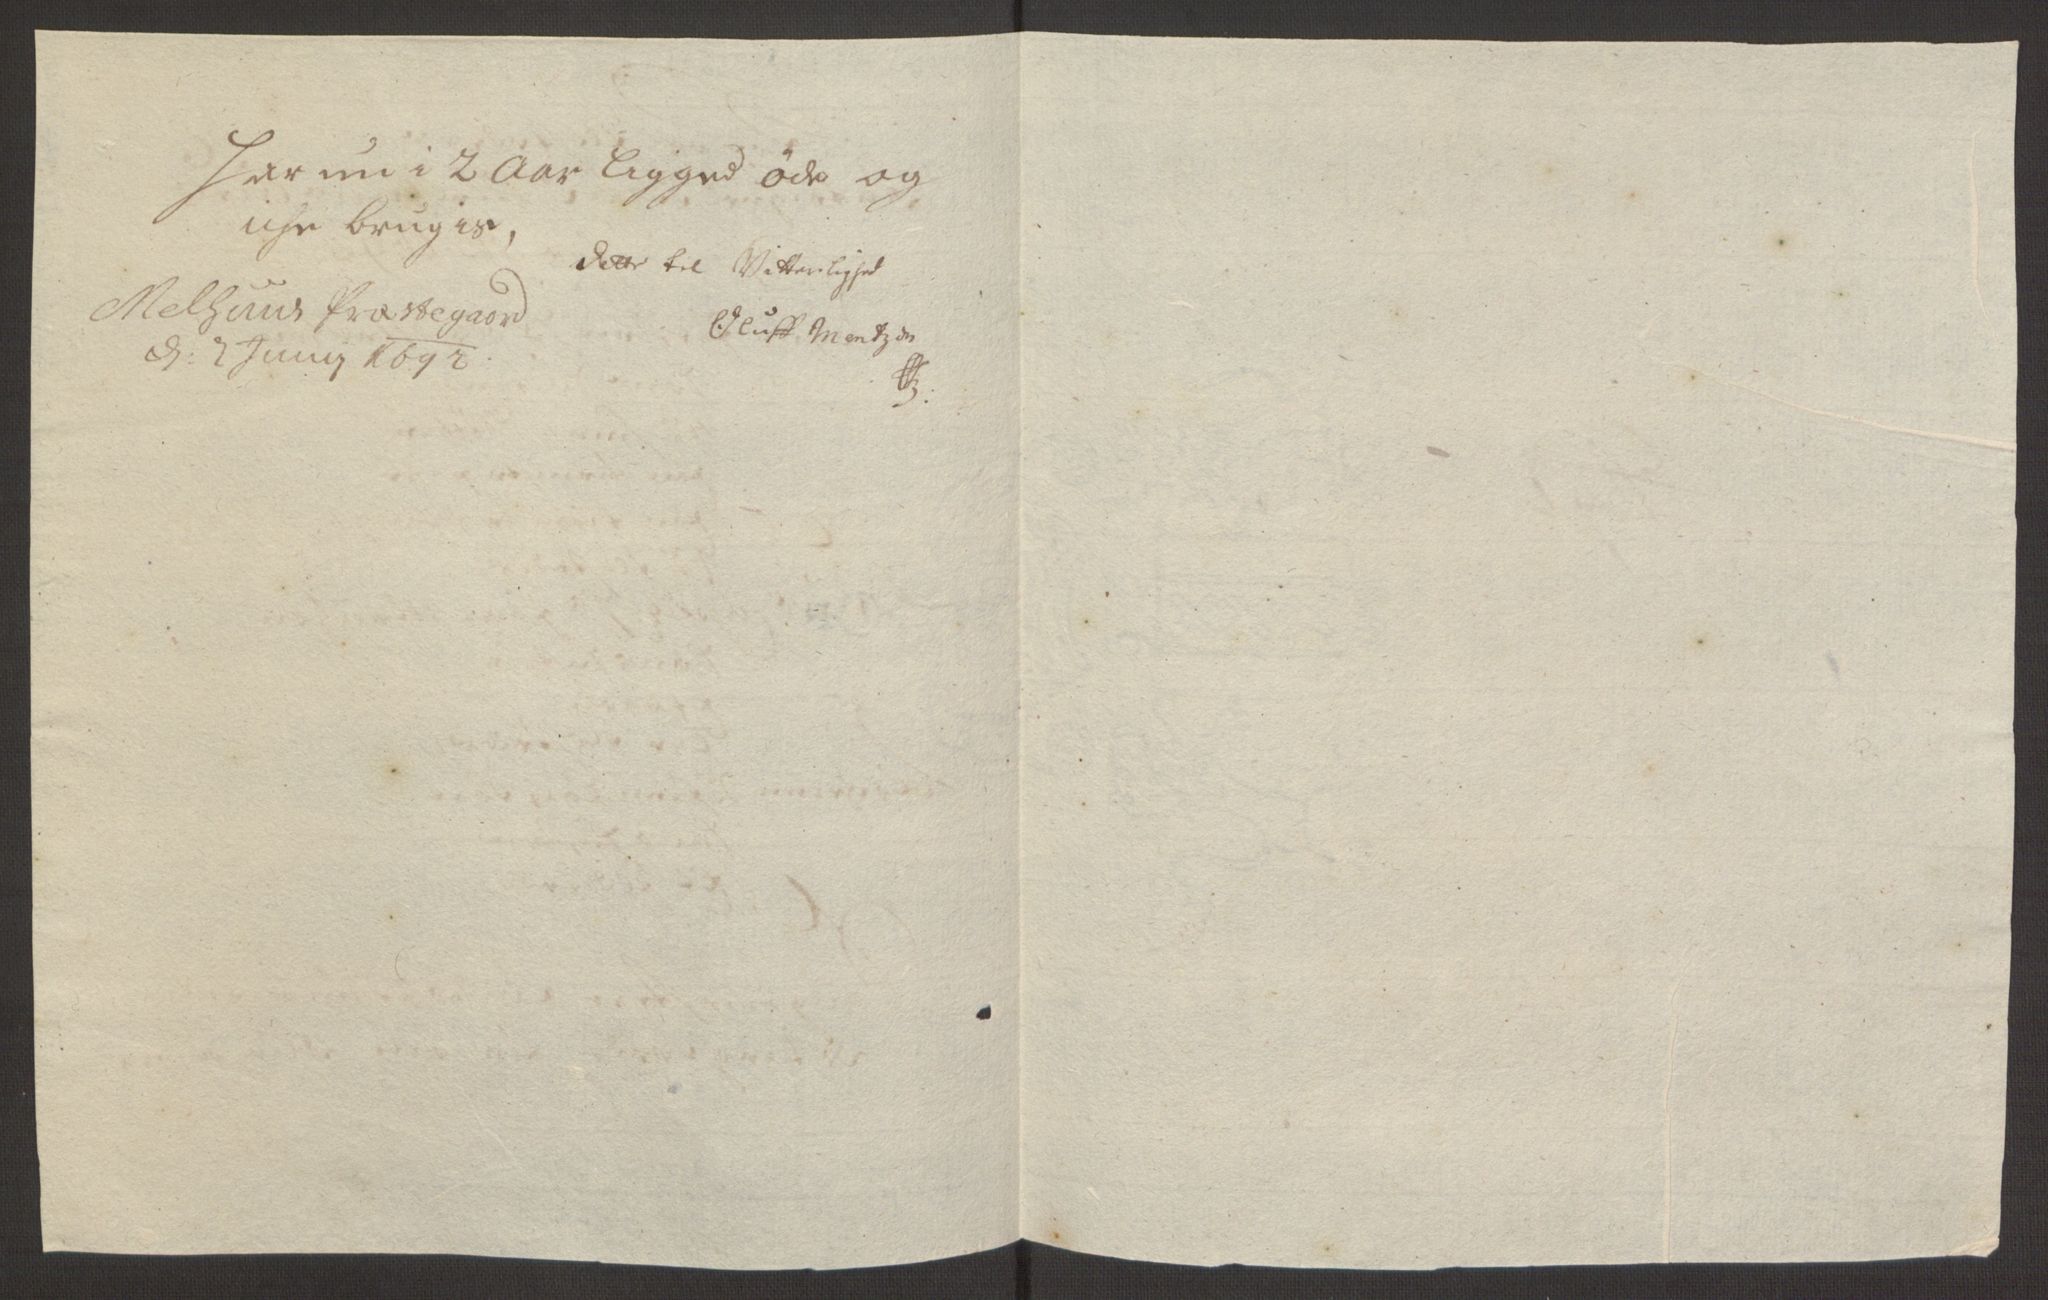 har nu i 2 Aar ligged øde og
iche brugis,
Dette til Vitterlighed
Melhuus Præstegaard
d: 2 Junij 1692.
Oluff Mentzen